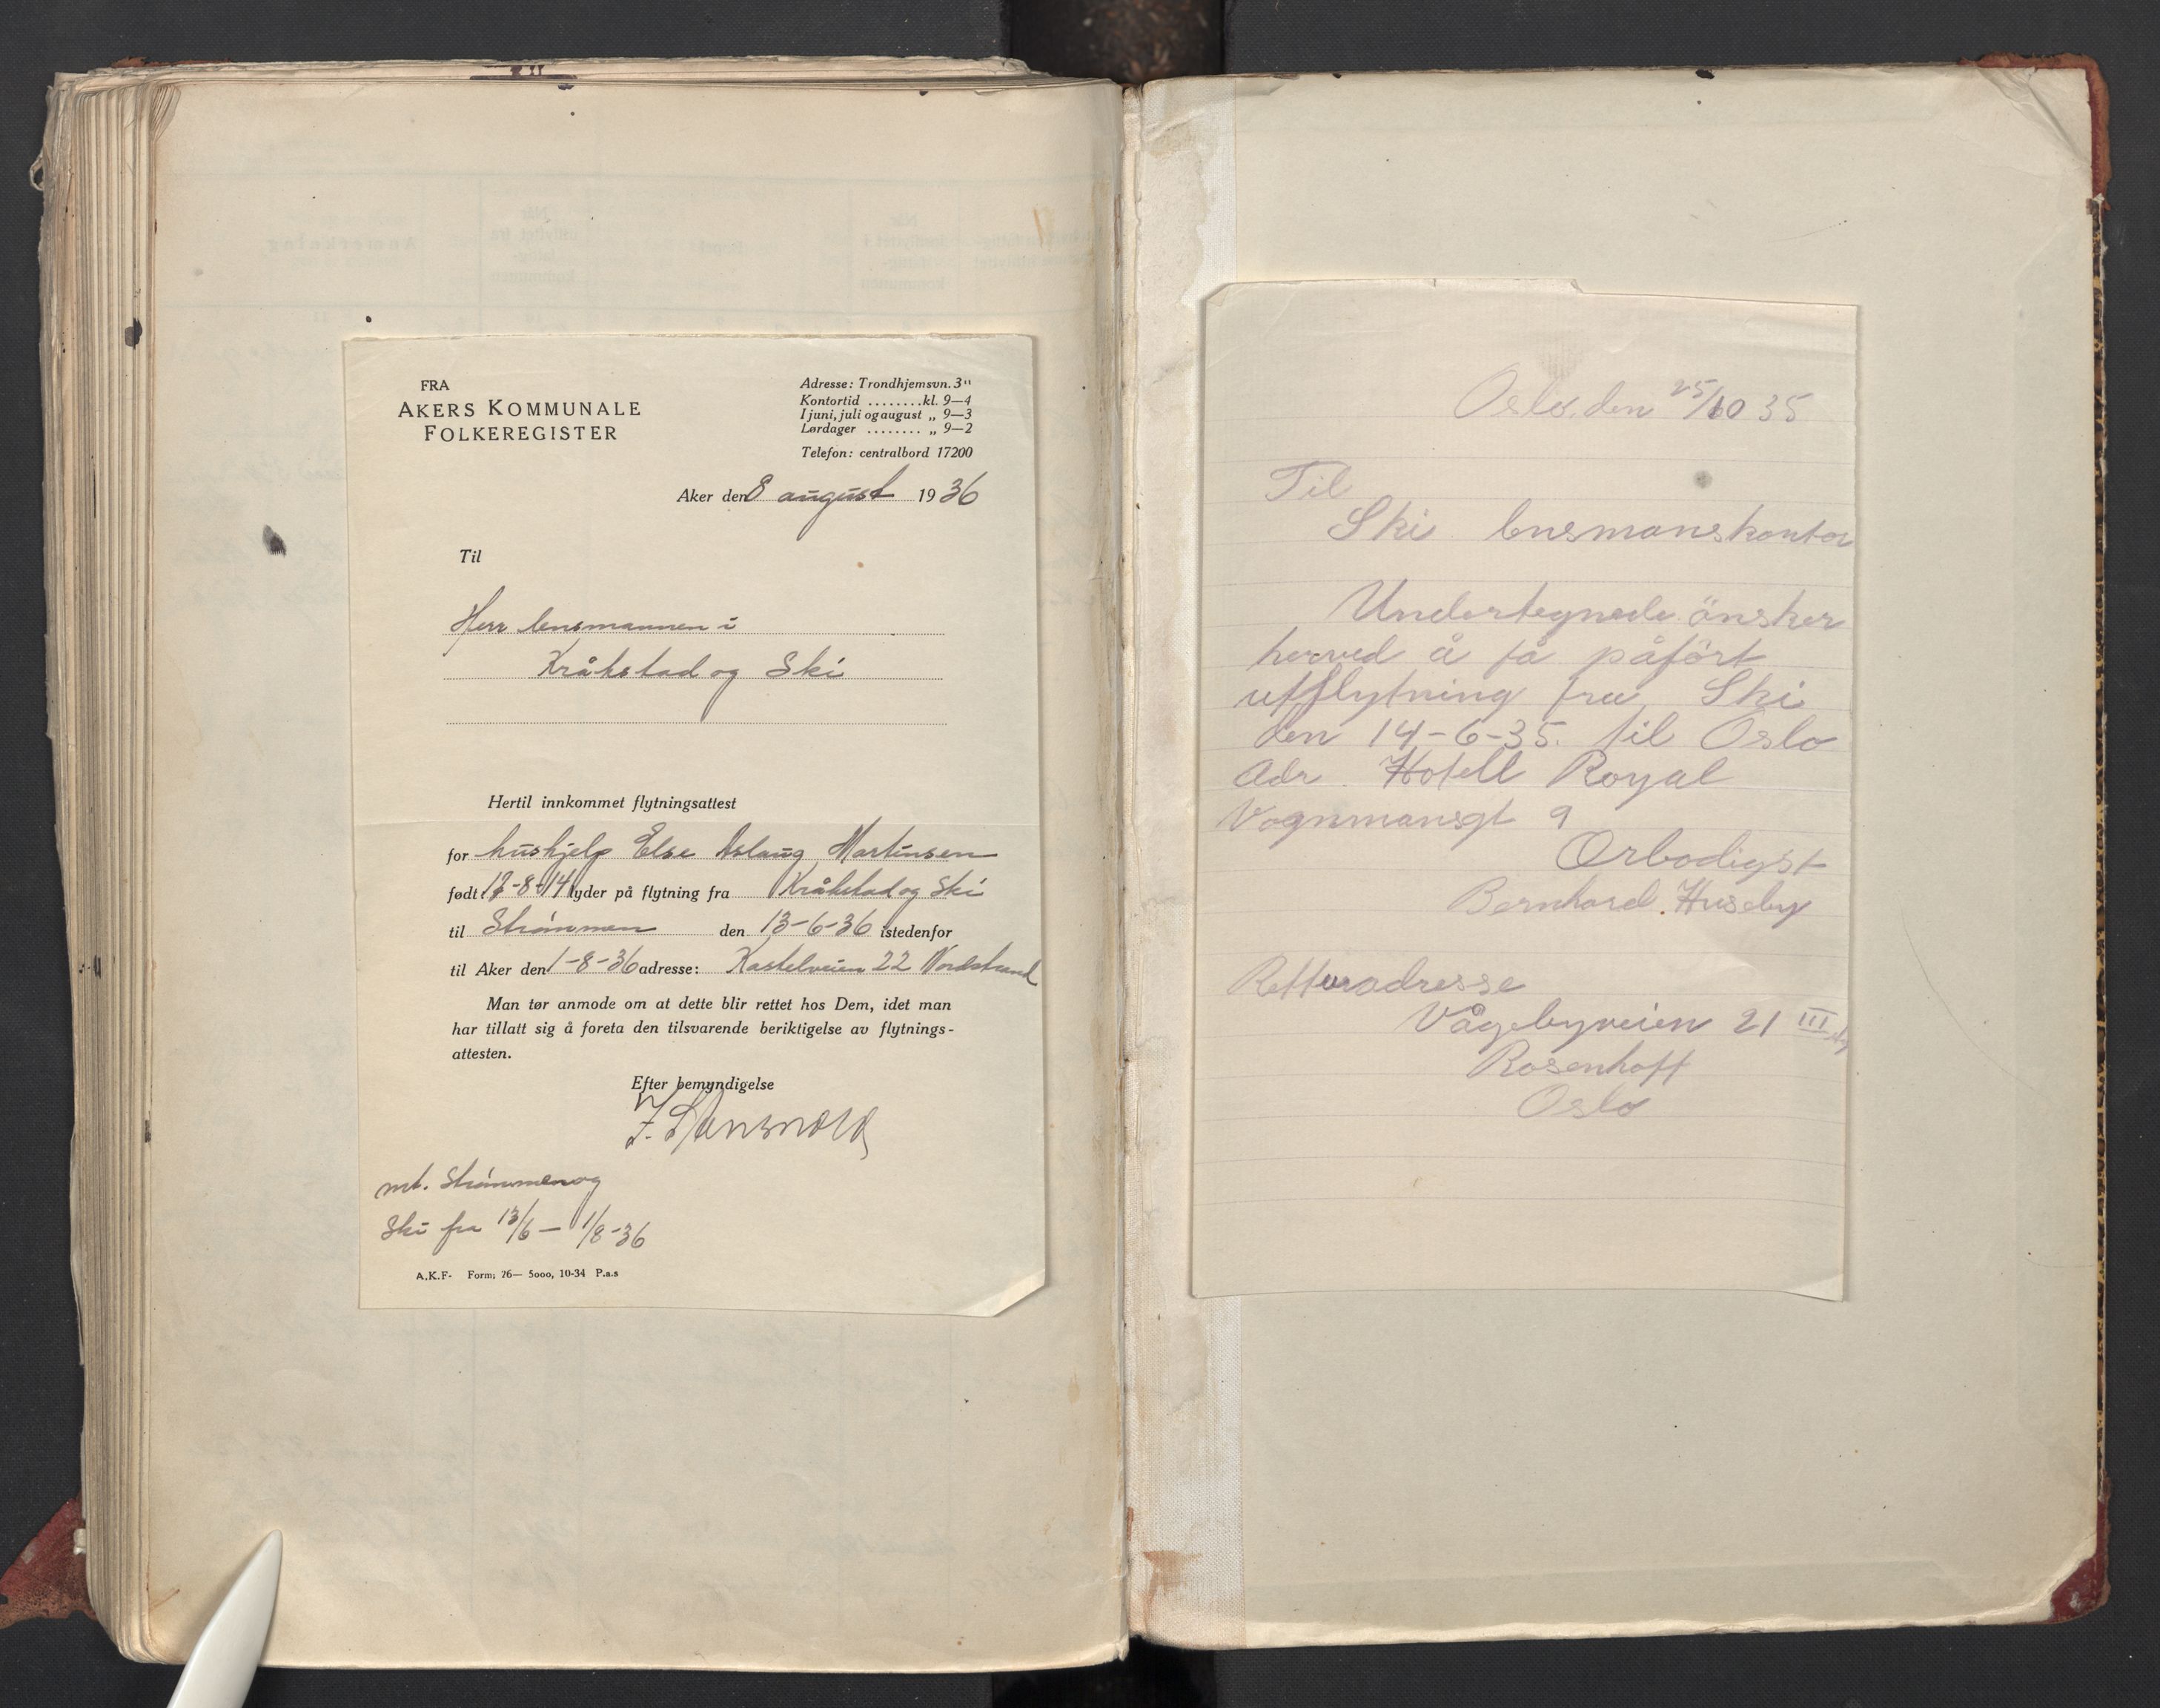 FRA
AKERS KOMMUNALE
FOLKEREGISTER
Adresse: Trondhjemsvn. 3"
Kontortid ........kl. 9—4
I juni, juli og august „ 9—3
Lørdager ........ „ 9—2
Telefon: centralbord 17200
Aker den 8 august 1936
Til
Herr lensmannen i
Kråkstad og Ski
Hertil innkommet flytningsattest
for hushjelp Else Aslaug Martinsen
født 17-8-14 lyder på flytning fra Kråkstad og Ski
til Strømmen den 13-6-36 istedenfor
til Aker den 1-8-36 adresse: Kastelveien 22 Nordstrand
Man tør anmode om at dette blir rettet hos Dem, idet man
har tillatt sig å foreta den tilsvarende beriktigelse av flytnings-
attesten.
Efter bemyndigelse
mt. Strømmen og
Ski fra 13/6 — 1/8-36
A.K.F- Form; 76— 5000, 10-34 P.a.s
Oslo, den 25/10 35
Til
Ski lensmanskontor
Undertegnede önsker
herved å få påfört
utflytning fra Ski
den 14-6-35. til Oslo
Adr. Hotell Royal
Vognmansgt 9
Ærbødigst
Bernhard Huseby
Returadresse
Vågebyveien 21 III
Rosenhoff
Oslo